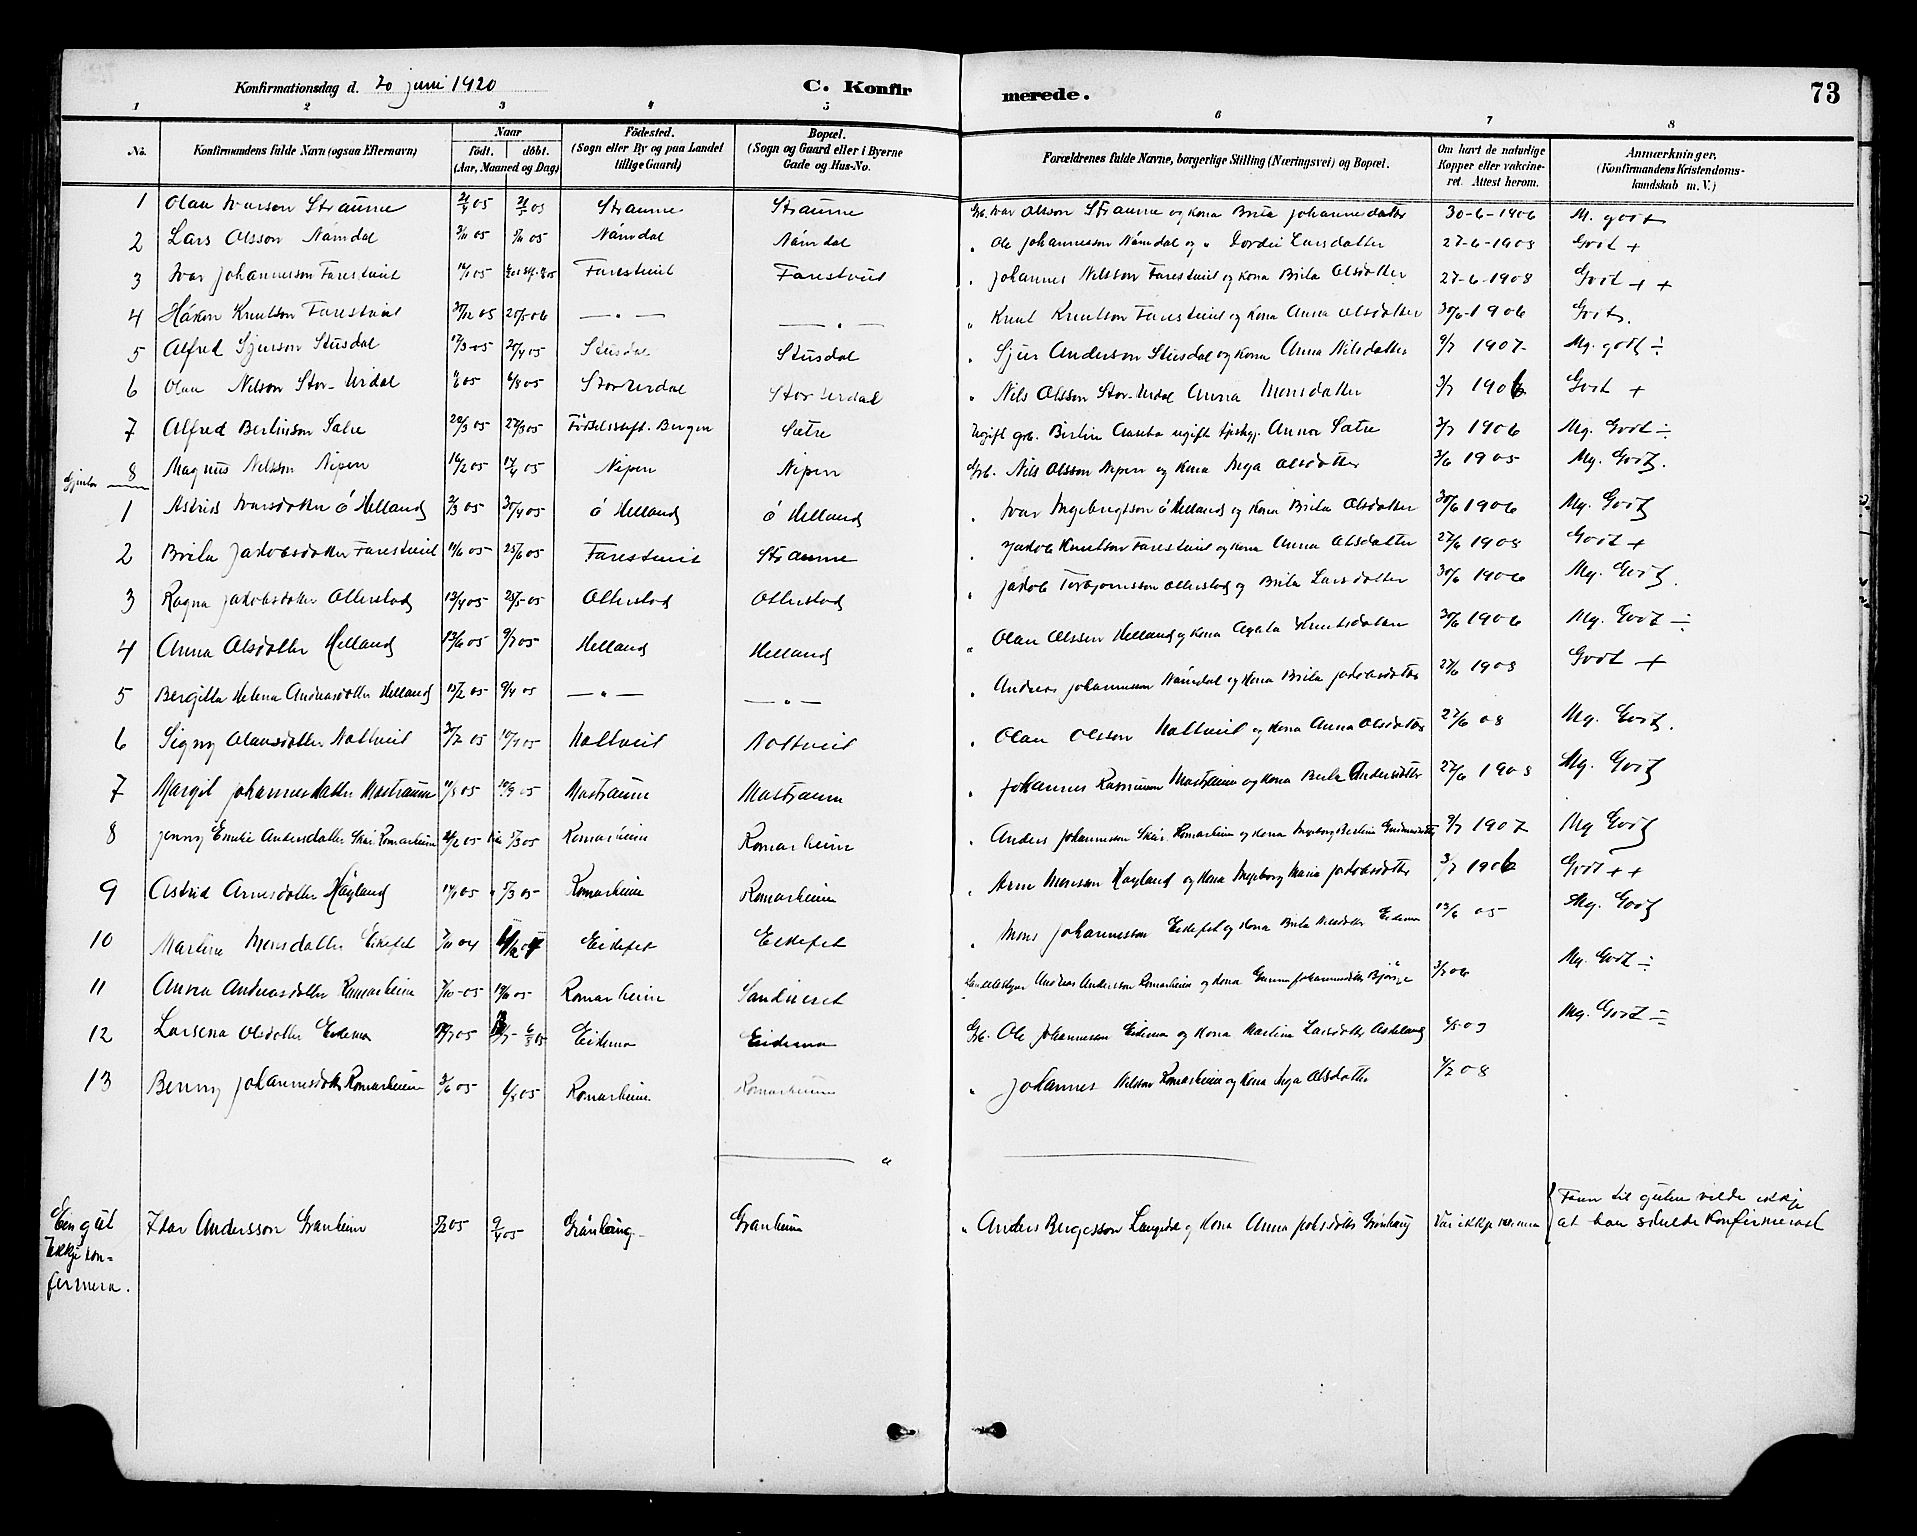 Konfirmationsdag d. 20 juni 1920 C. Konfirmerede. 73
1 2 3 4 5 6 7 8
No. Konfirmandens fulde Navn (ogsaa Efternavn) Naar födt. döbt. (Aar, Maaned og Dag) Födested. (Sogn eller By og paa Landet tillige Gaard) Bopæl. (Sogn og Gaard eller i Byerne Gade og Hus-No. Forældrenes fulde Navne, borgerlige Stilling (Næringsvei) og Bopæl. Om havt de naturlige Kopper eller vakcineret. Attest herom. Anmærkninger. (Konfirmandens Kristendomskundskab m. V.)
1 Olau Ivarson Straume 05 05 Straume Straume Grb. Ivar Olsson Straume og kona Brita Johannesdatter 30-6-1906 M. godt
2 Lars Olsson Nâmdal 05 05 Nâmdal Nâmdal " Ole Johannesson Nâmdal og " Dordei Larsdatter 27-6-1908 Godt +
3 Ivar Johannesson Farestveit 05 Farestveit Farestveit " Johannes Nilsson Farestveit og kona Brita Olsdotter 27-6-1908 Godt + +
4 Håkon Knutson Farestveit 30/12 05 20/5 06 — " — — " — " Knut Knutson Farestveit og kona Anna Olsdotter 30/6-1906 Godt.
5 Alfred Sjurson Stusdal 17/3-05 25/4 05 Stusdal Stusdal " Sjur Anderson Stusdal og kona Anna Nilsdatter 9/7 1907 Mg. godt ÷
6 Olau Nilson Stor-Urdal 05 6/8 05 Stor Urdal Stor Urdal " Nils Olsson Stor-Urdal Anna Monsdatter 3/7 1906 Godt +
7 Alfred Bertinson Sætre 20/3 05 27/3 05 Födselsstift. Bergen Sætre Ugift grb. Bertin ugift Anna Sætre 3/7 1906 Mg. Godt ÷
Gjentor 8 Magnus Nelsson Nipen 14/2 05 17/4 05 Nipen Nipen Grb. Nils Olsson Nipen og kona Inga Olsdotter 3/6 1905 Mg. Godt.
1 Astrid Ivarsdotter ô Helland 2/3 05 30/4 05 ô Helland ô Helland " Ivar Ingebrigtsson ô Helland og kona Brita Olsdotter 30/6 1906 Mg. Godt
2 Brita Jakobsdotter Farestveit 11/6 05 25/6 05 Farestveit Straume " Jakob Knutson Farestveit og kona Anna Olsdatter 27/6 1908 Godt +
3 Ragna Jakobsdotter Otterstad 13/4 05 28/5-05 Otterstad Otterstad " Jakob Torbjornsson Otterstad og Brita Larsdotter 30/6 1906 Mg. Godt.
4 Anna Olsdotter Helland 13/6 05 9/7 05 Helland Helland " Olau Olsson Helland og kona Agata Knutsdotter 30/6 1906 Mg. Godt ÷
5 Bergitta Helena Andreasdotter Helland 15/2 05 9/4 05 — " — — " — " Andreas Johannesson Nâmdal og kona Brita Jakobsdotter 27/6 1908 Godt +
6 Signy Olausdotter Nottveit 05 05 Nottveit Nottveit " Olau Olsson Nottveit og kona Anna Olsdotter 27/6 08 Mg. Godt.
7 Margit Johannesdatter Mostraum 11/8 05 10/9 05 Mostraum Mostraum " Johannes Rasmusson Mostraum og kona Brita Andersdotter 27/6 1908 Mg. Godt
8 Jenny Emilie Andersdatter Skår Romarheim 05 5/3 05 Romarheim Romarheim " Anders Johannesson Skår Romarheim og kona Ingeborg Bertina 9/7 1907 Mg Godt
9 Astrid Arnesdotter Höyland 05 5/3 05 Romarheim Romarheim " Arne Monson Höyland og kona Ingeborg Maria Jakobsdotter 3/7 1906 Godt + +
10 Martina Monsdatter Eikefet 7/11 04 Eikefet Eikefet " Mons Johannesson Eikefet og kona Brita Nilsdotter Eidema 13/6 05 Mg. Godt
11 Anna Andreasdotter Romarheim 7/10-05 05 Romarheim Sandneset Andreas Andersson Romarheim og kona Gunna Johannesdotter Björge 3/7 06 Mg. Godt ÷
12 Larsena Olsdotter Eidema 05 Eidema Eidema Grb. Ole Johannesson Eidema og kona Martina Larsdotter Askeland Mg. Godt ÷
13 Benny Johannesdotter Romarheim 05 05 Romarheim Romarheim " Johannes Nilsson Romarheim og kona Inga Olsdotter 08
Ein gut ikkje konfirmera. Andersson Grønheim 05 05 Grønhaug Grønheim " Anders Bergesson og kona Anna Grønhaug Var ikkje vaksinera { Faren til guten vilde ikkje
at han skulde konfirmerast